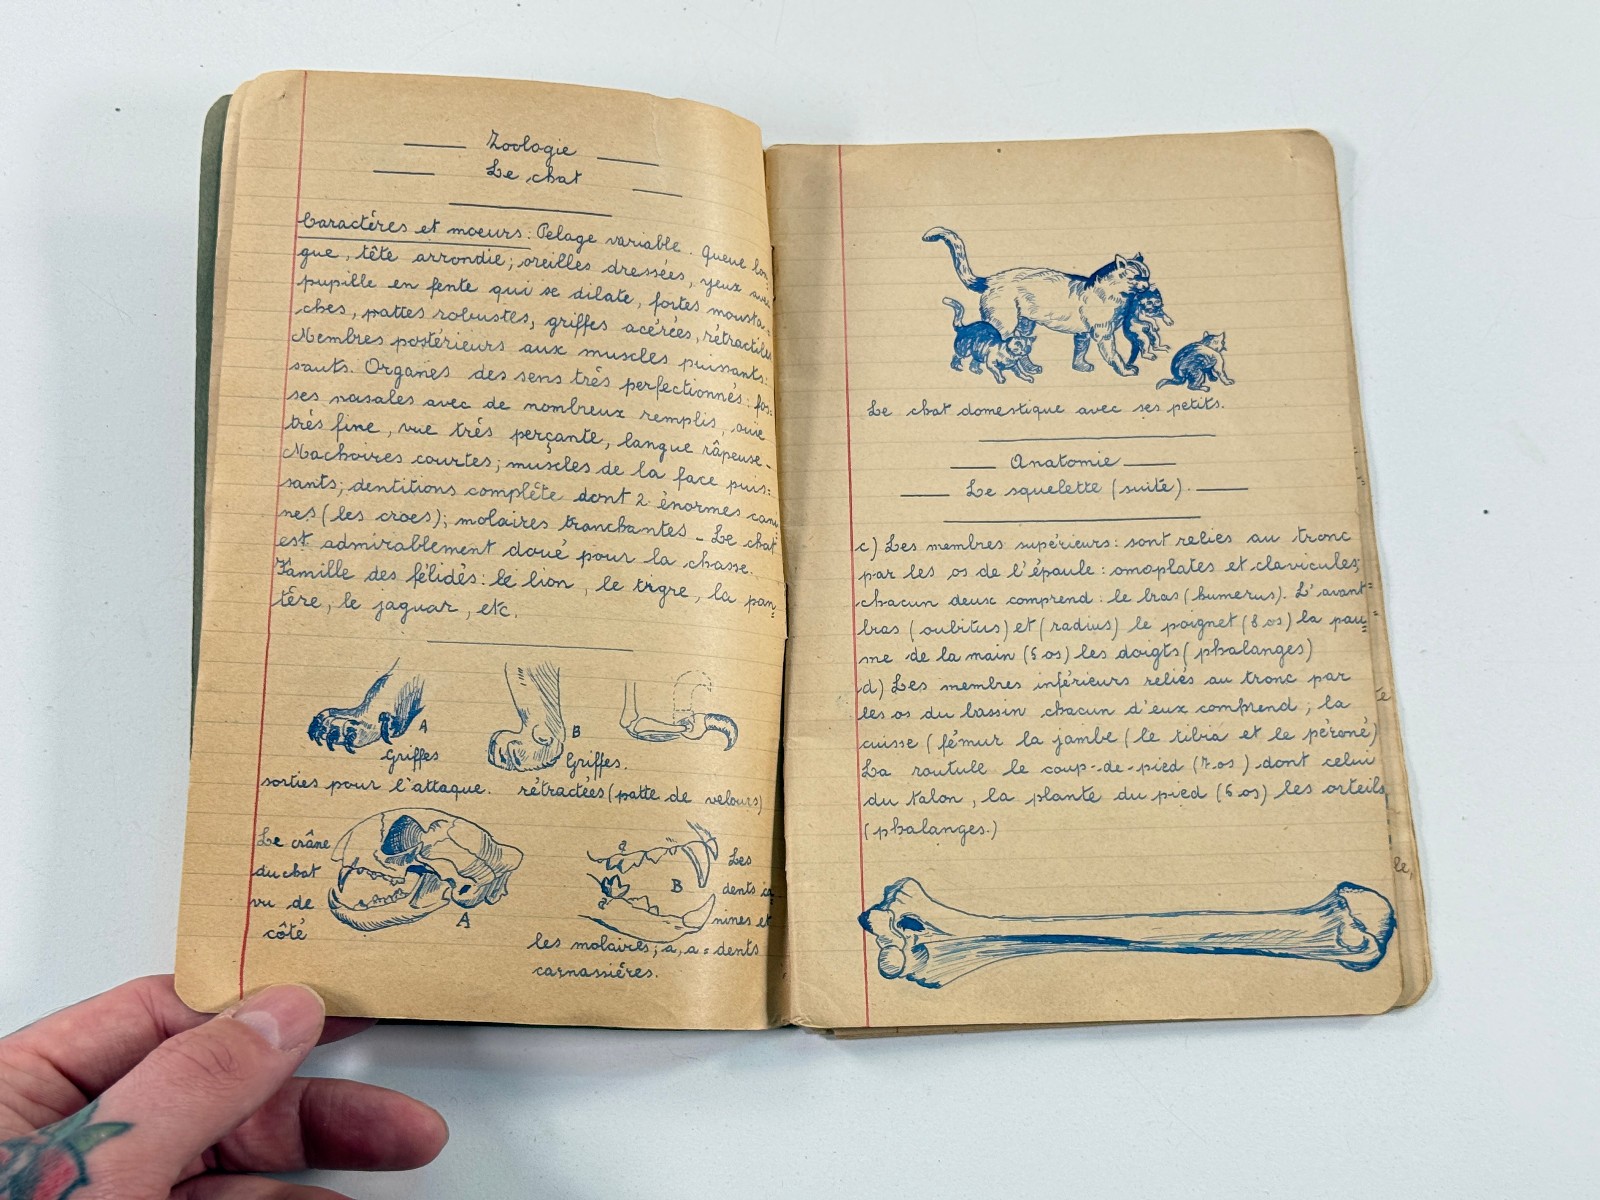 Zoologie
Le chat
Caractères et moeurs : Pelage variable. Queue lon
gue, tête arrondie ; oreilles dressées, yeux avec
pupille en fente qui se dilate, fortes mousta=
ches, pattes robustes, griffes acérées, rétractiles
Membres postérieurs aux muscles puissants :
sauts. Organes des sens très perfectionnés : fos=
ses nasales avec de nombreux remplis, ouie
très fine, vue très perçante, langue râpeuse -
Machoires courtes ; muscles de la face puis=
sants ; dentitions complète dont 2 énormes cani
nes (les crocs) ; molaires tranchantes - Le chat
est admirablement doué pour la chasse.
Famille des félidés : le lion, le tigre, la pan=
tère, le jaguar, etc.
A
Griffes
sorties pour l'attaque.
B
Griffes.
rétractées (patte de velours)
Le crâne
du chat
vu de
côté
A
a
a
B
Les
dents ca
nines et
les molaires ; a, a = dents
carnassières.
Le chat domestique avec ses petits.
Anatomie
Le squelette (suite).
c) Les membres supérieurs : sont reliés au tronc
par les os de l'épaule : omoplates et clavicules ;
chacun deux comprend : le bras (humerus). L'avant=
bras (cubitus) et (radius) le poignet (8 os) la pau=
me de la main (5 os) les doigts (phalanges)
d) Les membres inférieurs reliés au tronc par
les os du bassin chacun d'eux comprend ; la
cuisse (fémur la jambe (le tibia et le péroné)
La routule le coup-de-pied (7 os) dont celui
du talon, la plante du pied (5 os) les orteils
(phalanges.)
te
le,